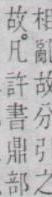 相亂故分引之
故凡許書鼎部